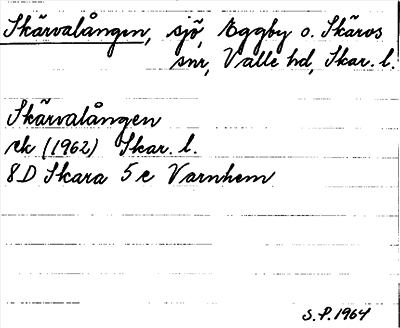 Skärvalången, sjö, Eggby o. Skärvs
snr, Valle hd, Skar. l.
Skärvalången
ek (1962) Skar. l.
8D Skara 5e Varnhem
S.P. 1964